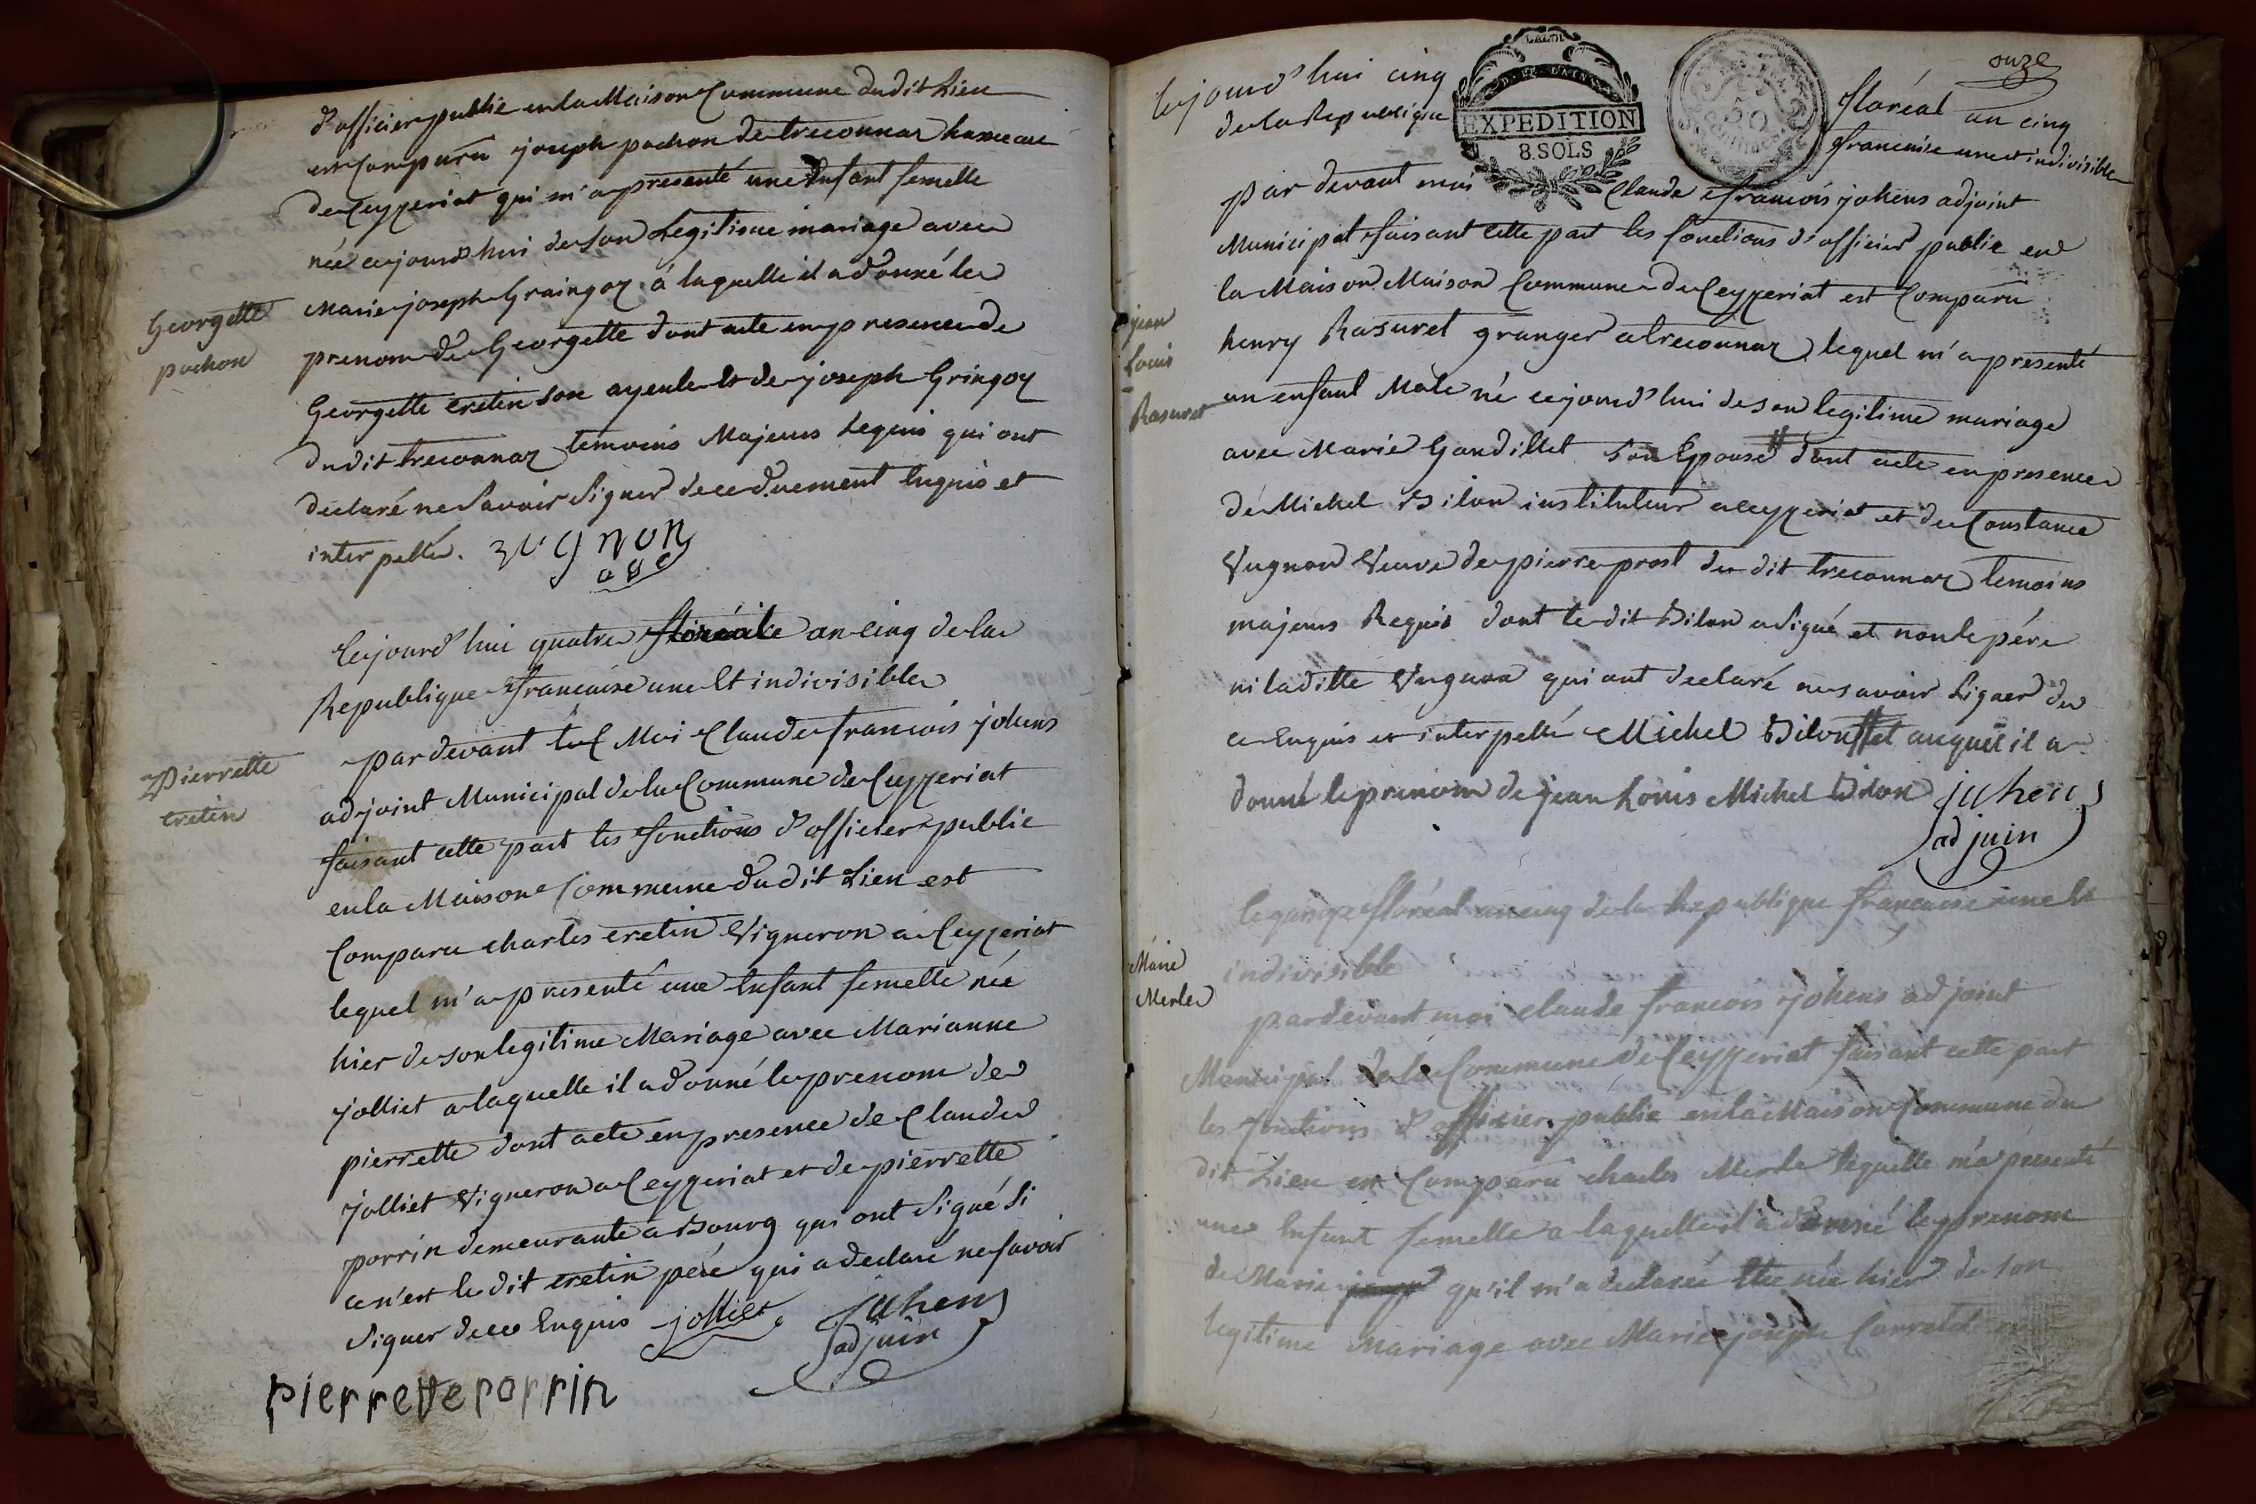 d'officier public en la Maison Commune dudit Lieu
est Comparu joseph pochon de treconnaz hameau
de Ceyzeriat qui m'a presenté une Enfant femelle
née cejourd'hui de son Legitisme mariage avec
Georgette
pochon
Marie joseph Graingoz á laquelle il a donné le
prenom de Georgette dont acte en presence de
Georgette cretin son ayeule et de joseph Gringoz
dudit treconnaz temoins Majeurs Requis qui ont
declaré ne Savoir Signer de ce duement Enquis et
interpellés.
Cejourd'hui quatre floréale an cinq de la
Republique francaise une Et indivisible
Pierrette
cretin
par devant Moi Claude francois johens
adjoint Municipal de la Commune de Ceyzeriat
faisant cette part les fonctions d'officier public
en la Maison Commune du dit Lieu est
Comparu charles cretin Vigneron a Ceyzeriat
lequel m'a presenté une Enfant femelle née
hier de son legitime Mariage avec Marianne
jolliet a laquelle il a donné le prenom de
pierrette dont acte en presence de Claude
jolliet Vigneron a Ceyzeriat et de pierrette
porrin demeurante a Bourg qui ont Signé Si
ce n'est le dit cretin pére qui a declaré ne savoir
Signer de ce Enquis jolliet juhens
adjuin
pierrette porrin
onze
Cejourd'hui cinq floréal an cinq
de la Republique francaise une et indivisible
LA LOI
D. DE L'AIN
EXPEDITION
8.SOLS
par devant moi Claude francois johens adjoint
Municipal faisant cette part les fonctions d'officier public en
la Maison Maison Commune de Ceyzeriat est Comparu
jean
Louis
Rasurel
henry Rasurel granger a treconnaz lequel m'a presenté
un enfant Mâle né cejourd'hui de son legitime mariage
avec Marie Gandillet son Epouse # dont acte en presence
de Michel Bilon instituteur a Ceyzeriat et de Constance
Vugnon Veuve de pierre prost du dit treconnaz temoins
majeurs Requis dont le dit Bilon a Signé et non le pére
ni la ditte Vugnon qui ont declaré ne savoir Signer de
ce Enquis et interpellé Michel Bilon # et auquel il a
donné le prenom de jean Louis Michel Bilon juhens
adjuin
Marie
Merle
le quinze floréal an cinq de la Republique francaise une Et
indivisible
pardevant moi claude francois johens adjoint
Municipal de la Commune de Ceyzeriat faisant cette part
les fonctions d'officier public en la Maison Commune du
dit Lieu est Comparu charles Merle lequelle m'a presenté
une Enfant femelle a laquelle il a donné le prenom
de Marie qu'il m'a declarée Etre née hier de son
legitime Mariage avec Marie joseph